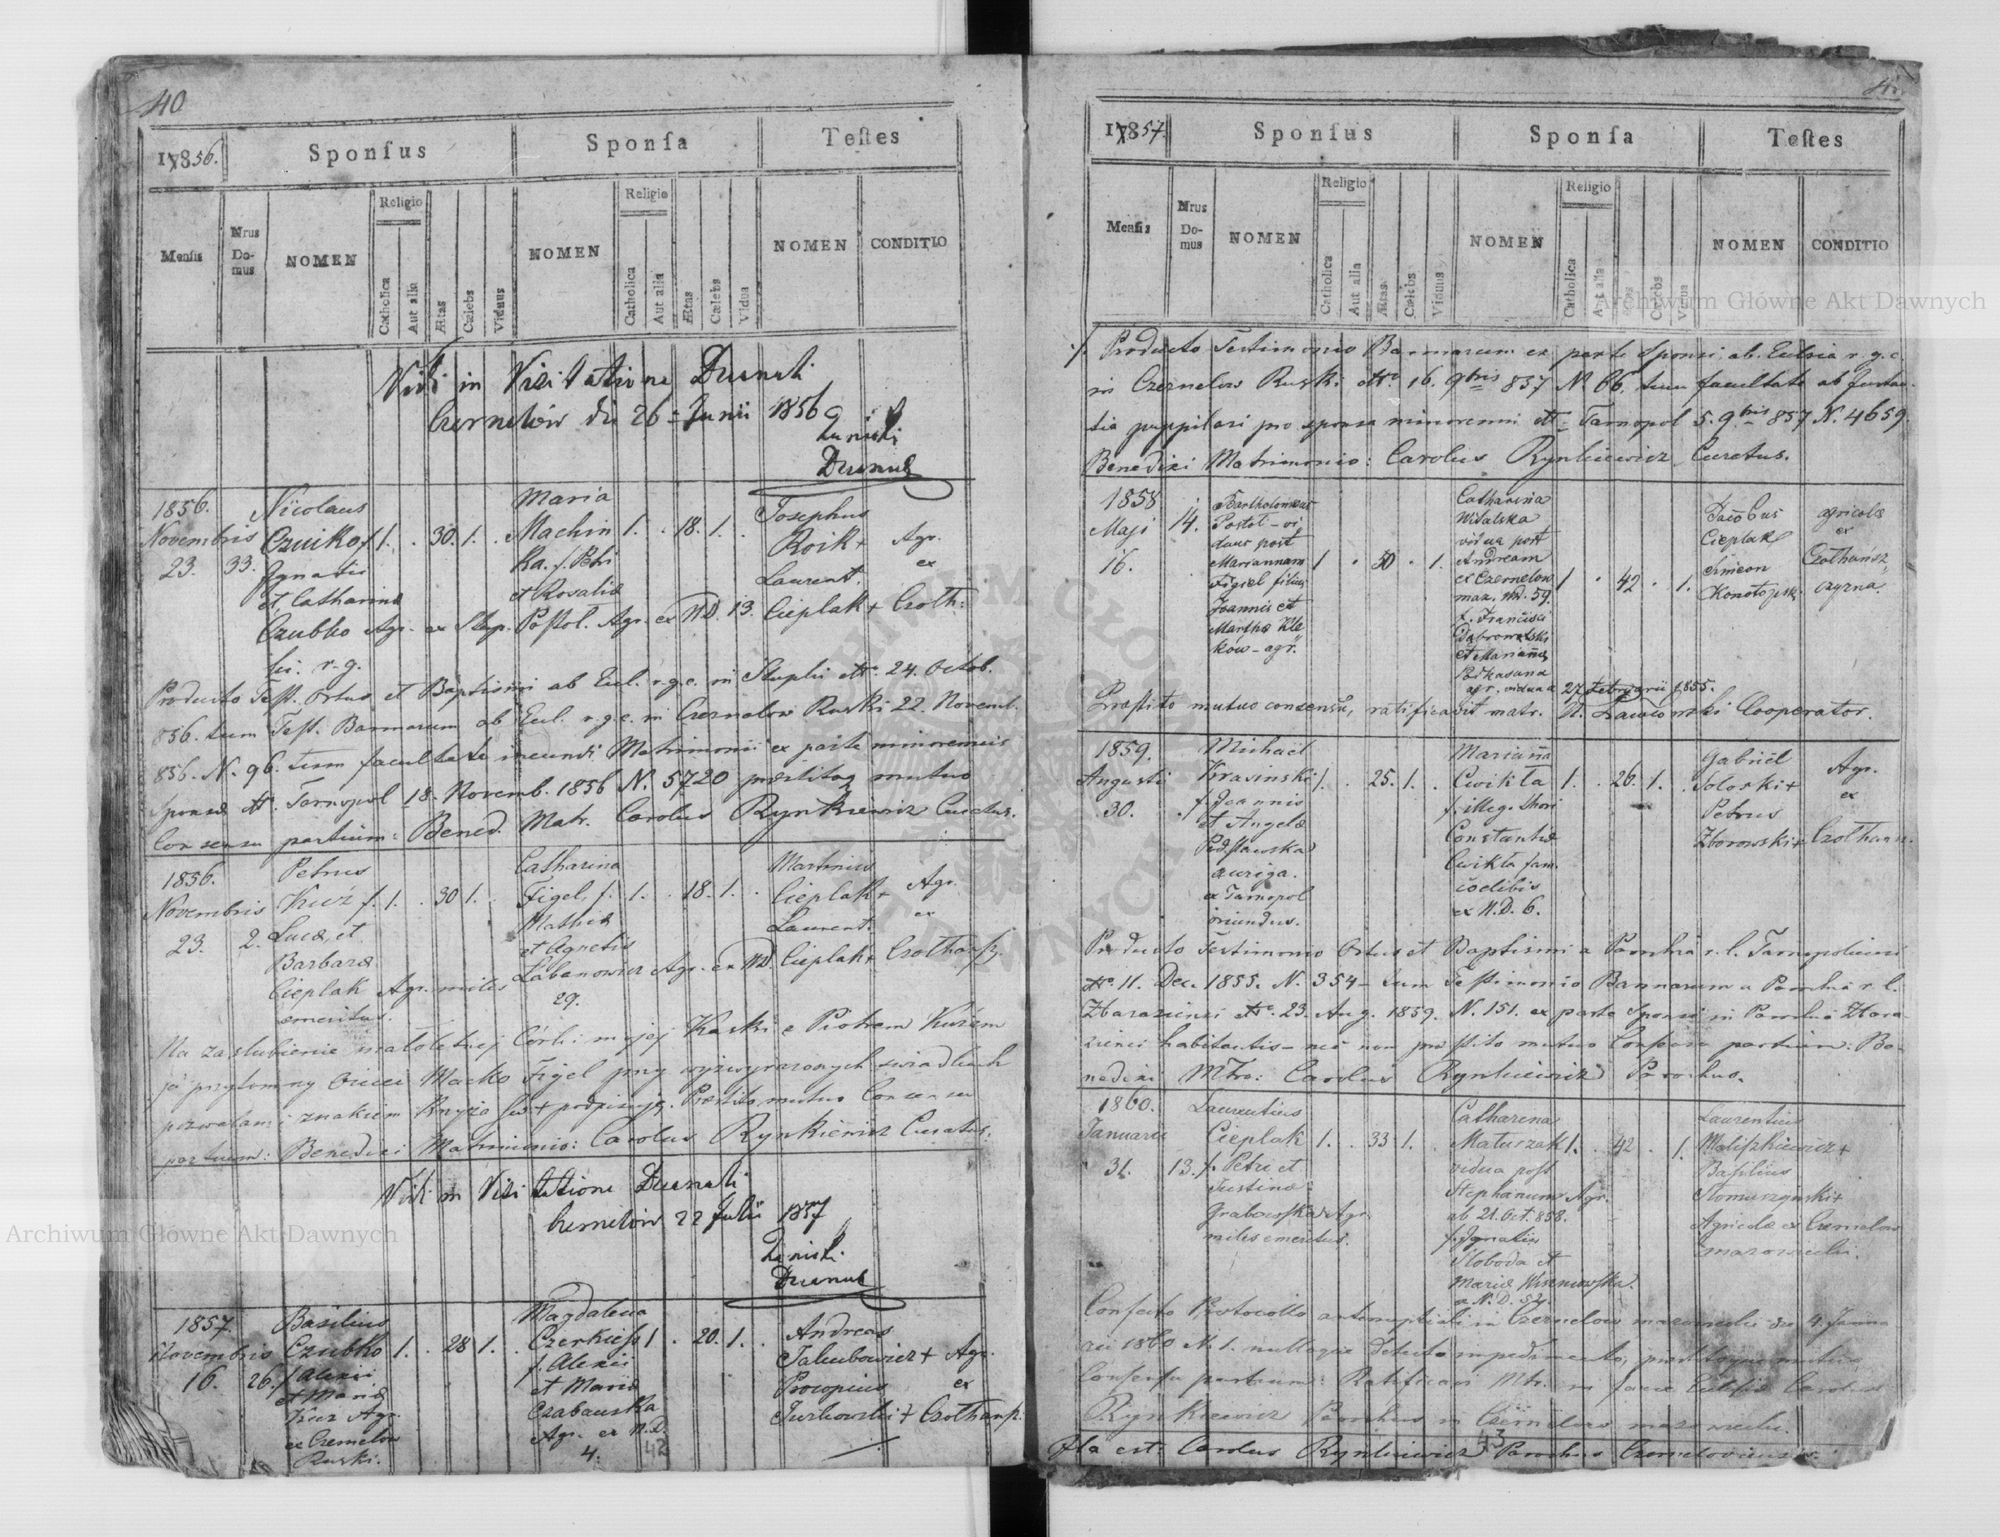 40
17856.
Sponſus
Sponſa
Teſtes
Menſis
Nrus Domus
NOMEN
Religio
Catholica
Aut alia
Ætas
Cælebs
Viduus
NOMEN
Religio
Catholica
Aut alia
Ætas
Cælebs
Vidua
NOMEN
CONDITIO
Vidi in Visitatione Decanali
Czernelów die 26 Junii 1856
Decanus
1856.
Novembris
23.
33.
Nicolaus
Czuiko f.
Ignatii
et Catharinæ
Czubko Agr. ex Slup.
ki. r. g.
1. . 30. 1. .
Maria
Machin
ka. f. Petri
et Rosaliæ
Postol. Agr. ex N.D. 13.
1. . 18. 1. .
Josephus
Roik +
Laurent.
Cieplak +
Agr.
ex
Czoth:
Producto Test. Ortus et Baptismi ab Eccl. r. g. c. in Slupki dto. 24. Octob.
856. tum Test. Bannorum ab Eccl. r. g. c. in Czernelow Ruski 22. Novemb.
856. N. 96. tum facultate ineundi Matrimonii ex parte minorennis
Sponsæ dt. Tarnopol 18. Novemb. 1856 N. 5720 præstitoq mutuo
Consensu partium: Bened. Matr. Carolus Rynkiewicz Curatus.
1856.
Novembris
23.
2.
Petrus
Kuź f.
Lucæ et
Barbaræ
Cieplak Agr. miles
emeritus.
1. . 30 1. .
Catharina
Figel, f.
Mathiæ
et Agnetis
Labanowicz Agr. ex N.D.
29.
1. . 18. 1. .
Martinus
Cieplak +
Laurent.
Cieplak +
Agr.
ex
Czothansz.
Na zaslubienie małoletniej Córki mojej Kaski z Piotrem Kuźem
ja przytomny Ociec Macko Figel przy wyzwyrazonych swiadkach
pozwalam i znakiem Krzyża św + podpisuję. Præstito mutuo Consensu
partium: Benedixi Matrimonio: Carolus Rynkiewicz Curatus.
Vidi in Visitatione Decanali
Czernelów 22 Julii 1857
Decanus
1857.
Novembris
16.
26.
Basilius
Czubko
f. Alexii
et Mariæ
Kuz Agr.
ex Czernelow
Ruski.
1. . 28 1. .
Magdalena
Czerkies
f. Alexii
et Mariæ
Czabanska
Agr. ex N.D.
4.
1. . 20. 1. .
Andreas
Jakubowicz +
Procopius
Jurkowski +
Agr.
ex
Czothansz.
42
17857.
Sponſus
Sponſa
Teſtes
Menſis
Nrus Domus
NOMEN
Religio
Catholica
Aut alia
Ætas
Cælebs
Viduus
NOMEN
Religio
Catholica
Aut alia
Ætas
Cælebs
Vidua
NOMEN
CONDITIO
./. Producto Testimonio Bannorum ex parte Sponsi ab Eclesia r. g. c.
in Czernelow Ruski dto 16. 9bris 857 N. 66. tum facultate ab Instan-
tia puppilari pro sponsa minorenni dt. Tarnopol 5. 9bris 857 N. 4659.
Benedixi Matrimonio: Carolus Rynkiewicz Curatus.
1858
Maji
16.
14.
Bartholomæus
Postol - vi
duus post
Mariannam
Figiel filius
Joannis et
Marthæ Kle
ków - agr.
1 . 50 . 1.
Catharina
Witalska
vidua post
Andream
ex Czernelow
maz. ND. 59.
f. Francisci
Dąbrowolski
et Mariannæ
Podkasana
agr. vidua a 27 Februarii 1855.
1 . 42 . 1.
Jacobus
Cieplak
Simeon
Konotopski
agricolæ
ex
Czothańsz
czyzna.
Præstito mutuo consensu, ratificavit matr. Cooperator.
1859.
Augusti
30.
Michaël
Krasinski
f. Joannis
et Angelæ
Podstawska
auriga.
ex Tarnopol
oriundus.
1. . 25. 1. .
Marianna
Cwikła
f. illeg. thori
Constantiæ
Cwikła fam.
cœlibis
ex N.D. 6.
1. . 26. 1. .
Gabriel
Soloski +
Petrus
Zborowski +
Agr.
ex
Czothan.
Producto Testimonio Ortus et Baptismi a Parochia r. l. Tarnopoliensi
dto. 11. Dec. 1855. N. 354 - tum Testimonio Bannorum a Parochia r. l.
Zbaraziensi dto. 23. Aug. 1859. N. 151. ex parte Sponsi in Parochia Zbara-
ziensi habitantis - nec non præstito mutuo Consensu partium: Be-
nedixi Mtro: Carolus Rynkiewicz Parochus.
1860.
Januarii
31.
13.
Laurentius
Cieplak
f. Petri et
Justinæ
Grabowska Agr.
miles emeritus.
1. . 33 1. .
Catharina
Matuszak
vidua post
Stephanum Agr.
ab 21. Oct. 858.
f. Ignatii
Sloboda et
Mariæ Wisniowska.
ex N.D. 52.
1. . 42 . 1.
Laurentius
Maliszkiewicz +
Basilius
Slomuszynski +
Agricolæ ex Czernelow
mazowiecki.
Confecto Protocollo antenuptiali in Czernelow mazowiecki die 4. Janua-
rii 1860 N. 1. nulloque detecto impedimento, præstitoque mutuo
Consensu partium: Ratificavi Mtr. in facie Eclesiæ Carolus
Rynkiewicz Parochus in Czernelow mazowiecki.
Ita est: Carolus Rynkiewicz Parochus Czernelowiensis.
43
Archiwum Główne Akt Dawnych
Archiwum Główne Akt Dawnych